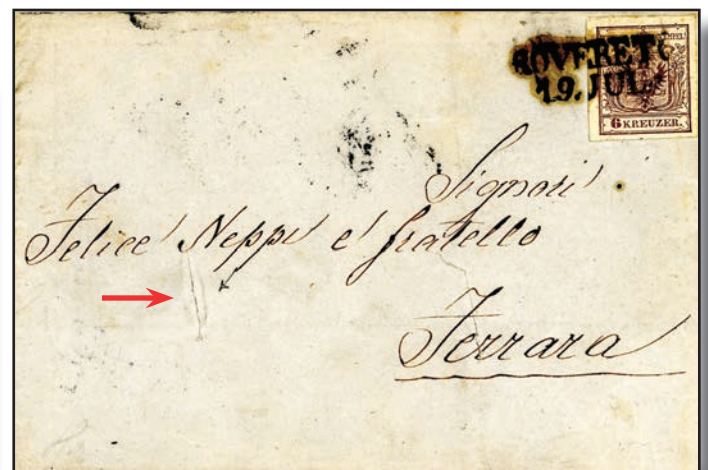 ROVERETO
19. JUL.
6 KREUZER.
Signori
Felice Neppi e fratello
Ferrara